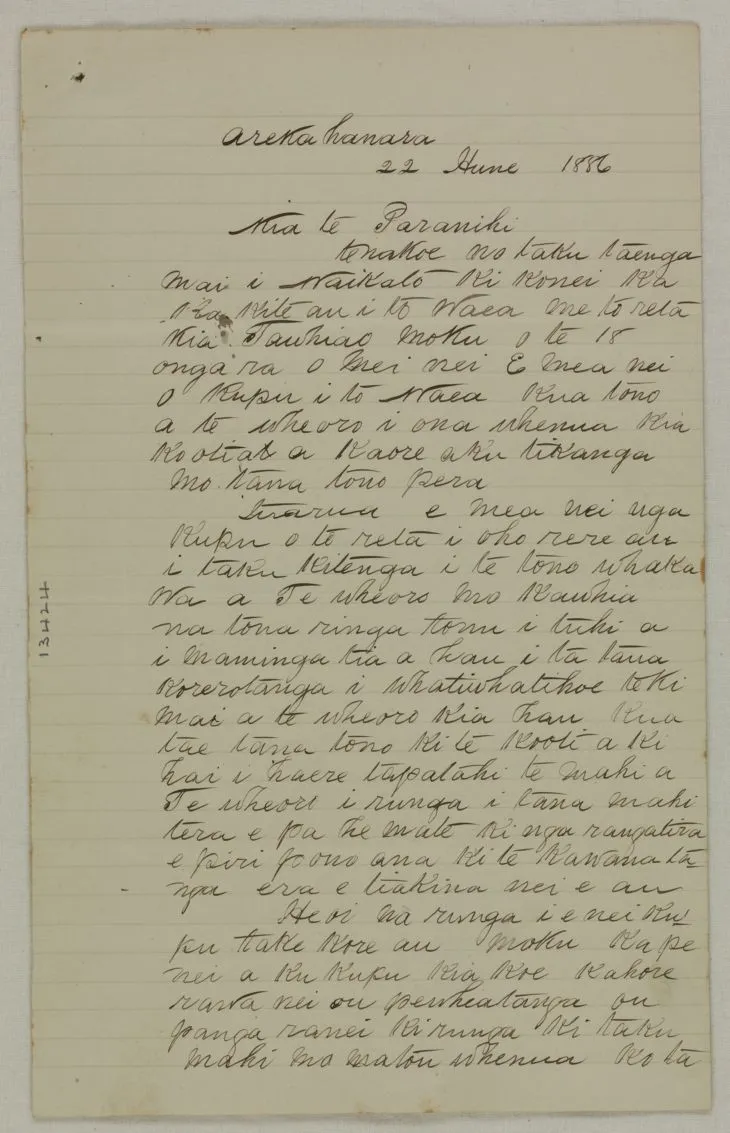 Arekahanara
22 Hune 1886
Kia te Paranihi
tenakoe no taku taenga
mai i Waikato ki konei ka
kite au i to Waea me to reta
kia Tawhiao moku o te 18
onga ra o Mei nei E mea nei
o kupu i to Waea kua tono
a te wheoro i ona whenua kia
kootiat a kaore aku tikanga
mo tana tono pera
Tuarua e mea nei nga
kupu o te reta i oho rere au
i taku kitenga i te tono whaka
wa a Te wheoro mo Kawhia
na tona ringa tonu i tuhi a
i maminga tia a hau i ta tana
korerotanga i whatiwhatikoe teki
mai a te wheoro kia hau kua
tae tana tono ki te kooti a ki
hai i haere tapatahi te mahi a
Te wheoro i runga i tana mahi
tera e pa he mate ki nga rangatira
e piri pono ana ki te Kawana ta-
nga era e tiakina nei e au
Heoi na runga i e nei ku-
pu take kore au moku ka pe
nei a ku kupu kia koe kahore
rawa nei ou pewheatanga ou
panga ranei ki runga ki taku
mahi mo matou whenua ko ta
13424